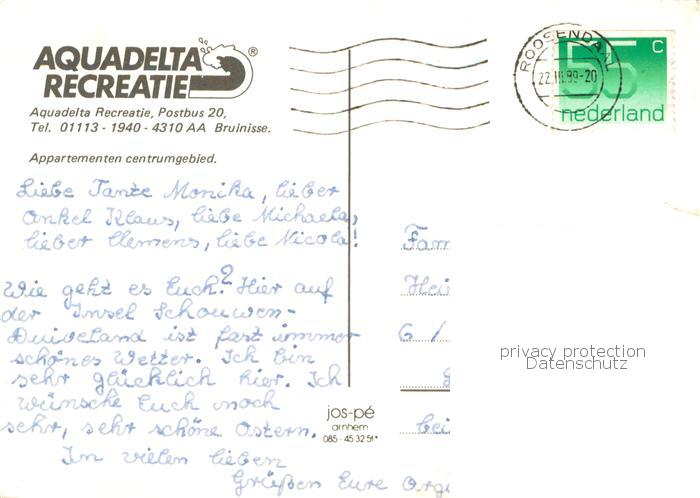 AQUADELTA
RECREATIE ®
Aquadelta Recreatie, Postbus 20,
Tel. 01113 - 1940 - 4310 AA Bruinisse.
Appartementen centrumgebied.
Liebe Tante Monika, lieber
Onkel Klaus, liebe Michaela,
lieber Clemens, liebe Nicola!
Wie geht es Euch? Hier auf
der Insel Schouwen-
Duiveland ist fast immer
schönes Wetter. Ich bin
sehr glücklich hier. Ich
wünsche Euch noch
sehr, sehr schöne Ostern.
In vielen lieben
Grüßen Eure
jos-pé
arnhem
085 - 45 32 51*
ROOSENDAAL
22.III.89-20
55 c
nederland
Fam
Hei
6 /
bei
privacy protection
Datenschutz